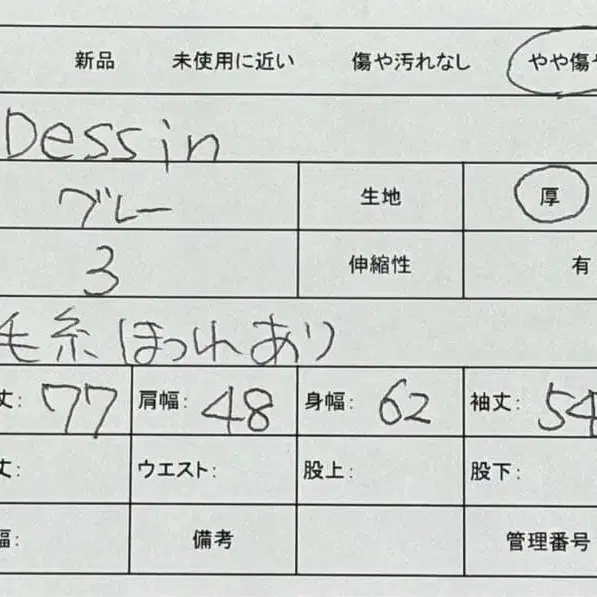 新品 未使用に近い 傷や汚れなし やや傷や
Dessin
グレー 生地 厚
3 伸縮性 有
毛糸ほつれあり
丈: 77 肩幅: 48 身幅: 62 袖丈: 54
丈: ウエスト: 股上: 股下:
幅: 備考 管理番号